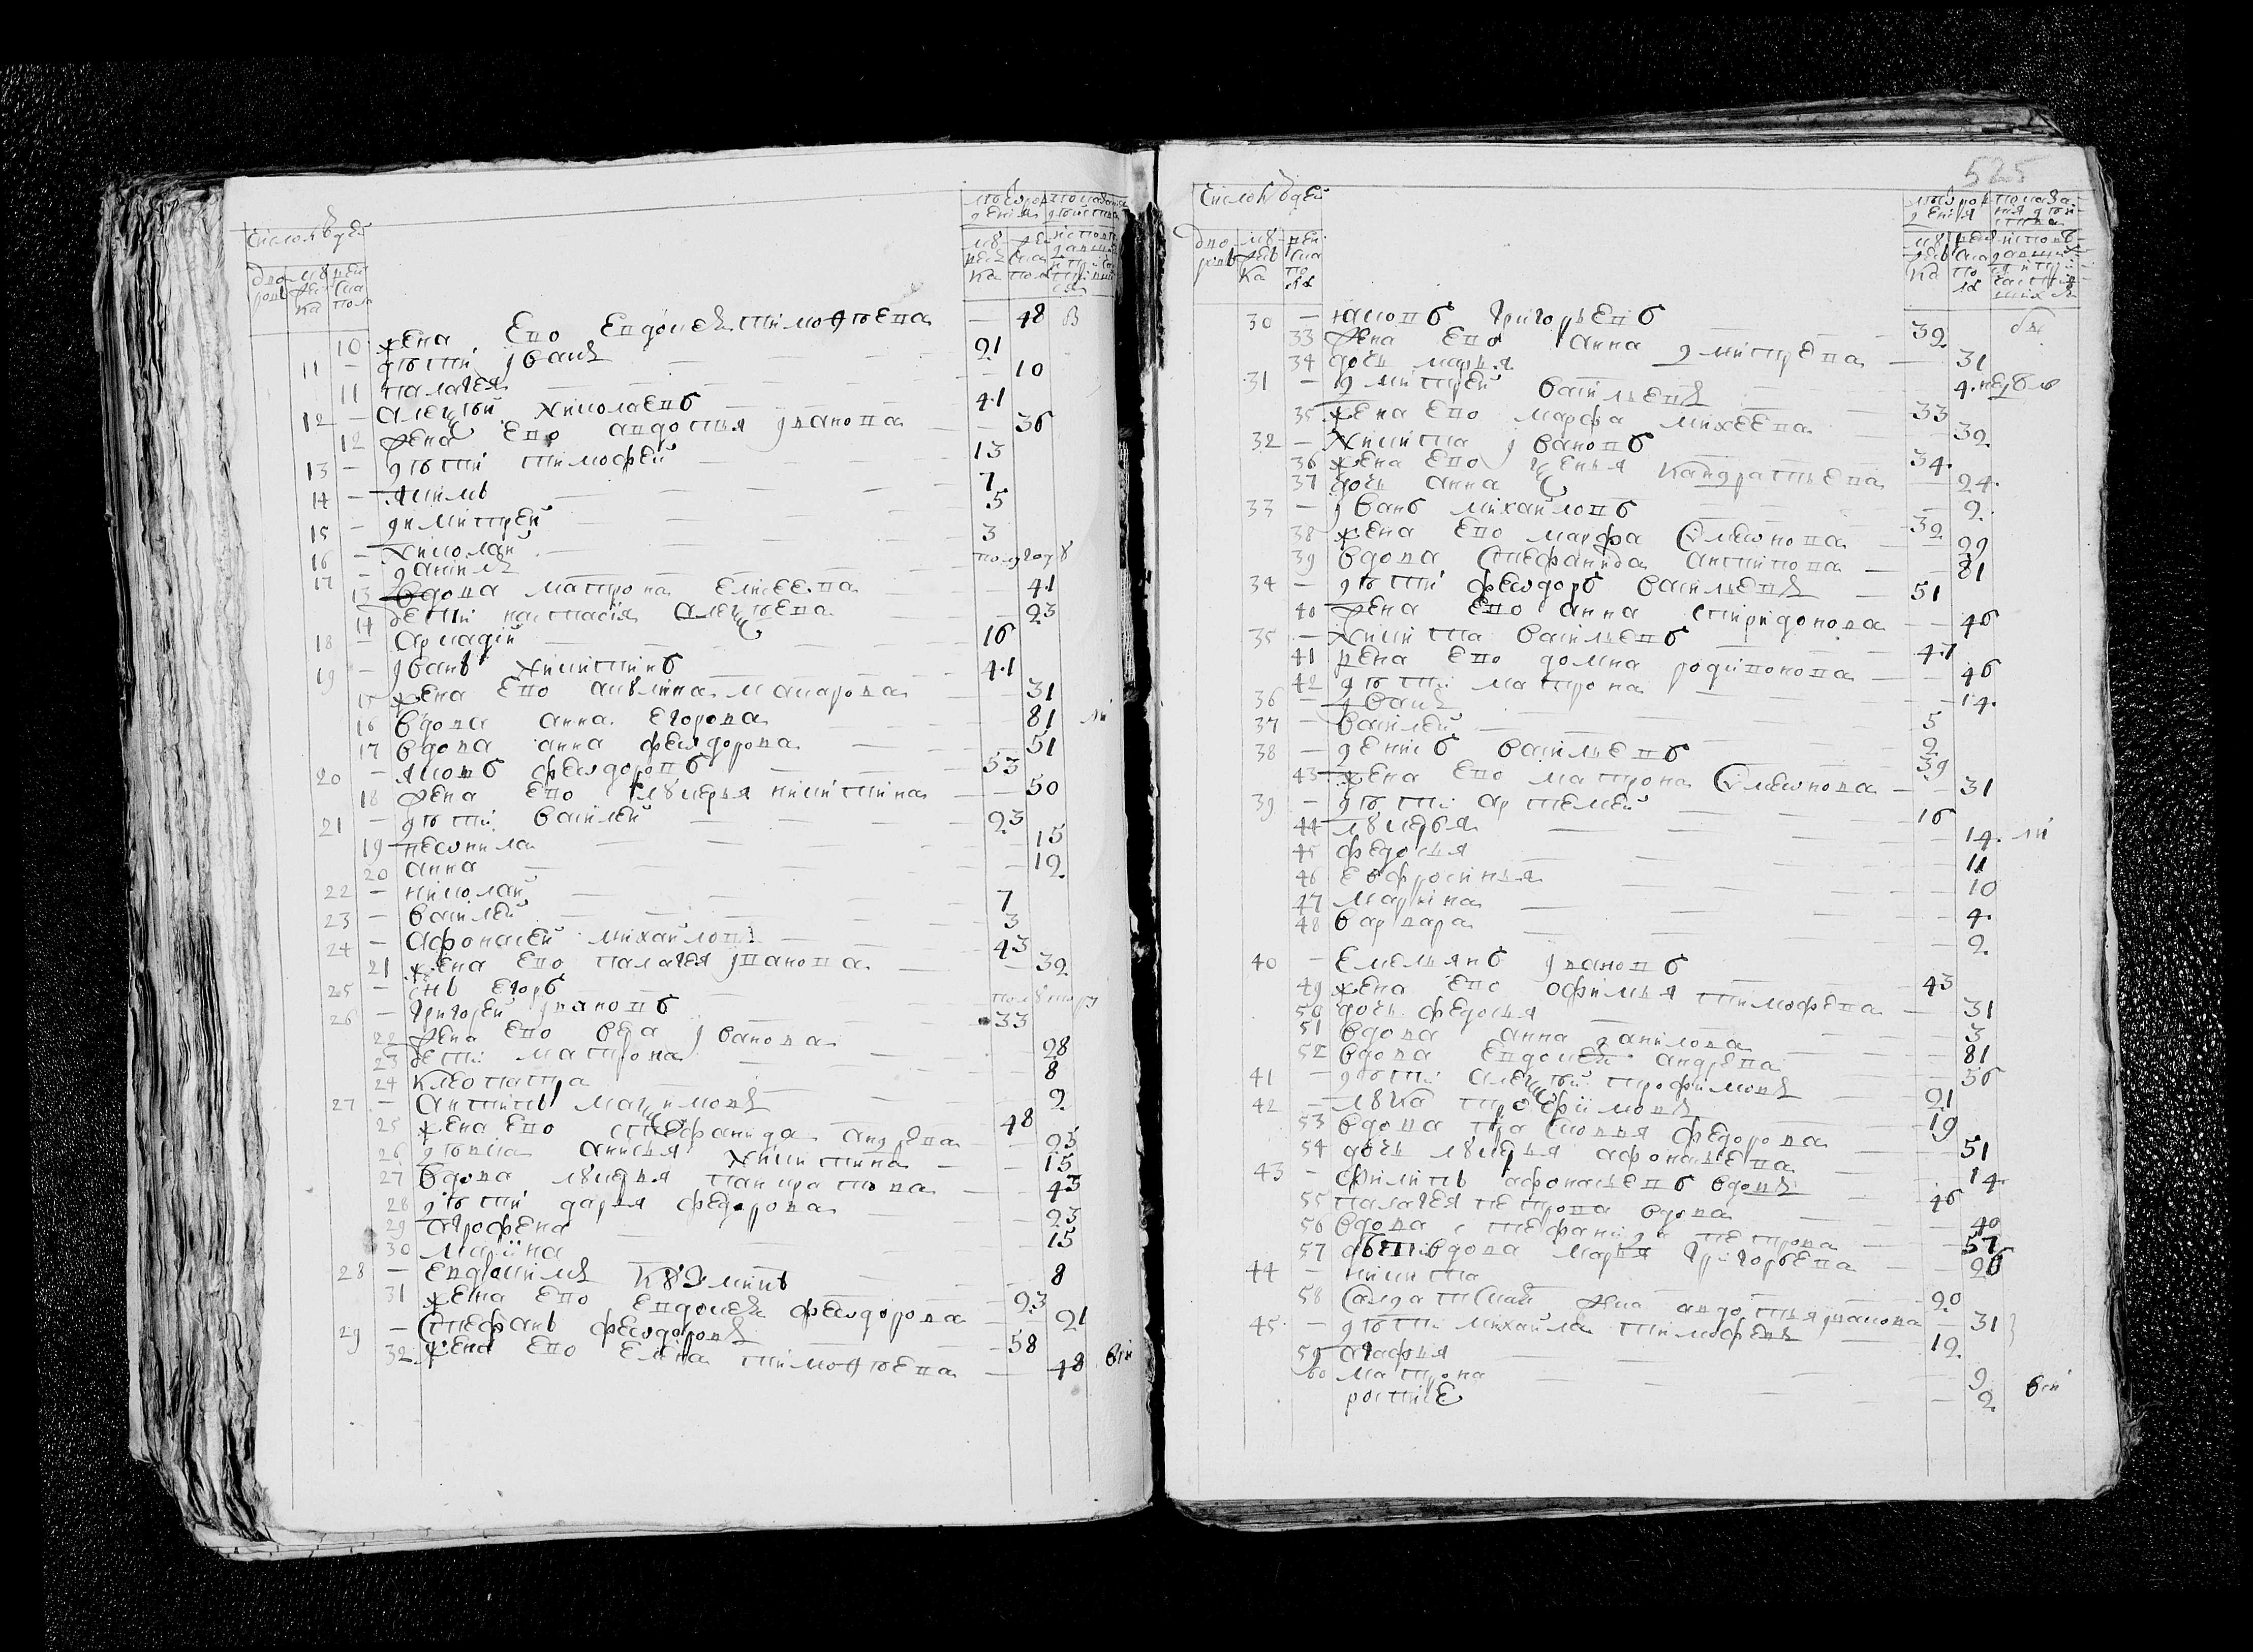 число людей
мужеска
женска пола
10 жена Его Евдокея тимофѣева — 48
11 — дѣти јванъ 21
11 палагея — 10
12 — алеѯѣй Николаевъ 41
12 жена Его авдотья јванова — 36
13 — дѣти тимофей 13
14 — якимъ 7
15 — димитрей 5
16 — Николай 3
17 — данилъ полугоду
13 вдова матрона Елисеева — 41
14 дети настасія алеѯѣева — 23
18 — аркадій 16
19 — јванъ Никитинъ 41
15 жена Его акулина макарова — 31
16 вдова анна Егорова — 81
17 вдова анна феѡдорова — 51
20 — яковъ феѡдоровъ 53
18 жена Его лукерья никитина — 50
21 — дѣти василей 23
19 неѡнила — 15
20 анна — 12
22 — николай 7
23 — василей 3
24 — афонасей михайловъ 43
21 жена Его палагея јванова — 32
25 — снъ Егоръ
26 — григорей јвановъ 33
22 жена Его вера јванова — 28
23 дети матрона — 8
24 клеопатра — 2
27 — антипъ маѯимовъ 48
25 жена Его стефанида андрева — 23
26 анисья Никитина — 15
27 вдова лукерья панкратова — 43
28 дѣти дарья федорова — 23
29 аграфена — 15
30 марина — 8
28 — Евдокимъ кузминъ 23
31 жена Его Евдокея феѡдорова — 21
29 — стефанъ феѡдоровъ 58
32 жена Его Елена тимофѣева — 48
525
число людей
30 — яковъ григорьевъ 32
33 жена Его анна дмитрева — 31
34 дочь марья — 4
31 — дмитрей васильевъ 33
35 жена Его марфа михеева — 32
32 — Никита јвановъ 34
36 жена Его ѯенья кандратьева — 24
37 дочь анна — 2
33 — јванъ михайловъ 32
38 жена Его марфа Сѵмеѡнова — 29
39 вдова стефанида антипова — 81
34 — дѣти феѡдоръ васильевъ 51
40 жена Его анна спиридонова — 46
35 — Никита васильевъ 47
41 жена Его домна родивонова — 46
42 дѣти матрона — 14
36 — јванъ 5
37 — василей 2
38 — денисъ васильевъ 39
43 жена Его матрона Сѵмеѡнова — 31
39 — дѣти артемей 16
44 лукерья — 14
45 федосья — 11
46 Евфросинья — 10
47 марина — 4
48 варвара — 2
40 — Емельянъ јвановъ 43
49 жена Его офимья тимофева — 31
50 дочь федосья — 3
51 вдова анна данилова — 81
52 вдова Евдокея андрева — 56
41 — дѣти алеѯѣй трофимовъ 21
42 — лука трофимовъ 19
53 вдова прасковья федорова — 51
54 дочь лукерья афонасьева — 14
43 — филипъ афонасьевъ вдовъ 46
55 палагея петрова вдова — 40
56 вдова стефанида петрова — 57
57 вдова марья григорьева — 26
44 — никита 20
58 Салдатская жна авдотья јванова — 31
45 — дѣти михайла тимофевъ 12
59 агафья — 9
60 матрона — 2
росписе